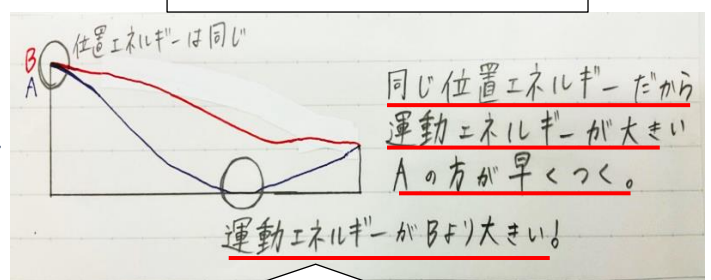 位置エネルギーは同じ
B
A
同じ位置エネルギーだから
運動エネルギーが大きい
Aの方が早くつく。
運動エネルギーがBより大きい!